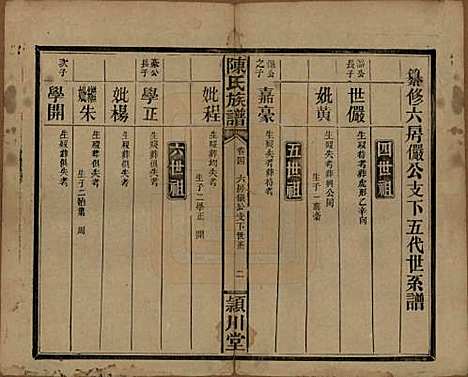 纂修六房儼公支下五代世系譜
四世祖
溫公長子
世儼
生歿失考葬虎形乙辛向
妣黃
生歿失考葬與公同
生子一嘉豪
五世祖
儼公之子
嘉豪
生歿失考葬
妣程
生歿葬均失考
生子二學正 開
陳氏族譜
卷四
六房儼公支下世系
二
潁川堂
六世祖
豪公長子
學正
生歿葬俱失考
妣楊
生歿葬俱失考
繼妣朱
生歿葬俱失考
生子二
周
次子
學開
生歿葬失考